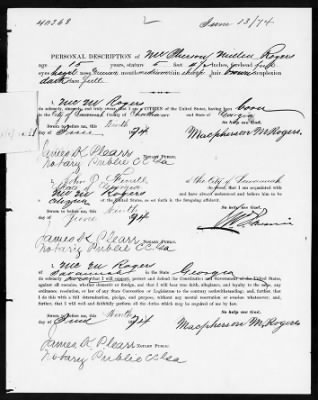 40368 2 June 13/74
PERSONAL DESCRIPTION of McPherson Millen Rogers
age 15 years, stature 5 feet inches, forehead full
eyes hazel nose mouth chin sharp hair brown complexion
dark face full
I, Mc M Rogers
do solemnly, sincerely, and truly swear, that I am a CITIZEN of the United States, having been born
in the City of Savannah County of Chatham and State of Georgia
So help me God.
Sworn to before me, this Ninth
day of June 74 Macpherson M. Rogers.
James K Plearr NOTARY PUBLIC.
Notary Public CC Ga
I, John D of the City of Savannah
State Georgia do swear, that I am acquainted with
Mc M Rogers and have reason to believe that he is a
citizen of the United States, as set forth in the foregoing affidavit.
So help me God.
Sworn to before me, this Ninth
day of June 74
James K Plearr NOTARY PUBLIC.
Notary Public CC Ga
I, Mc M Rogers
of Savannah in the State of Georgia
do solemnly swear that I will support, protect and defend the Constitution and Government of the United States,
against all enemies, whether domestic or foreign, and that I will bear true faith, allegiance, and loyalty to the same, any
ordinance, resolution, or law of any State Convention or Legislature to the contrary notwithstanding; and, further, that
I do this with a full determination, pledge, and purpose, without any mental reservation or evasion whatsoever; and,
further, that I will well and faithfully perform all the duties which may be required of me by law.
So help me God.
Sworn to before me, this Ninth
day of June 74 Macpherson M. Rogers
James K Plearr NOTARY PUBLIC.
Notary Public CC Ga